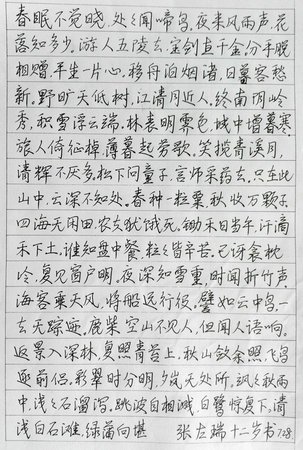 春眠不觉晓,处々闻啼鸟,夜来风雨声,花
落知多少,游人五陵去,宝剑直千金,分手脱
相赠,平生一片心,移舟泊烟渚,日暮客愁
新,野旷天低树,江清月近人,终南阴岭
秀,积雪浮云端,林表明霁色,城中增暮寒
旅人倚征棹,薄暮起劳歌,笑揽青溪月,
清辉不厌多,松下问童子,言师采药去,只在此
山中,云深不知处,春种一粒粟,秋收万颗子
四海无闲田,农夫犹饿死,锄禾日当午,汗滴
禾下土,谁知盘中餐,粒々皆辛苦,已讶衾枕
冷,复见窗户明,夜深知雪重,时闻折竹声,
海客乘天风,将船远行役,譬如云中鸟,一
去无踪迹,鹿柴,空山不见人,但闻人语响,
返景入深林,复照青苔上,秋山敛余照,飞鸟
逐前侣,彩翠时分明,夕岚无处所,飒々秋雨
中,浅々石溜泻,跳波自相溅,白鹭惊复下,清
浅白石滩,绿蒲向堪 张左瑞十二岁书728.